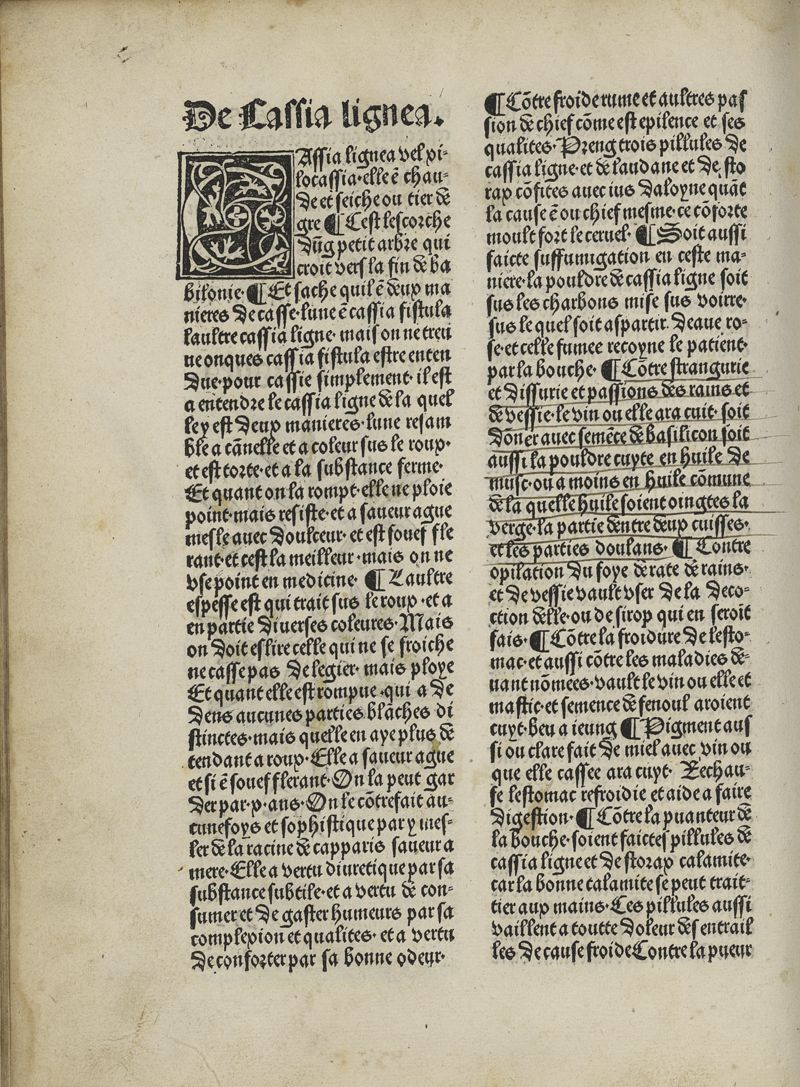 De Cassia lignea.
CAssia lignea vel pi-
locassia·elle ē chau-
de et seiche ou tier de
gre ¶ Cest lescorche
dũg petit arbre qui
croit vers la fin de ba
bilonie·¶ Et sache quil ē deux ma
nieres de casse·lune ē cassia fistula
laultre cassia ligne·mais on ne treu
ue onques cassia fistula estre enten
due·pour cassie simplement·il est
a entendre le cassia ligne de la quel
le y est deux manieres·lune resam
ble a cānelle et a coleur sus le roux·
et est torte·et a la substance ferme·
Et quant on la rompt·elle ne ploie
point·mais resiste·et a saueur ague
mesle auec doulceur·et est souef fle
rant·et cest la meilleur·mais on ne
vse point en medicine· ¶ Laultre
espesse est qui trait sus le roux·et a
en partie diuerses coleures·Mais
on doit eslire celle qui ne se froiche
ne casse pas de legier·mais ploye
Et quant elle est rompue·qui a de
dens aucunes parties blāches di
stinctes·mais quelle en aye plus de
tendant a roux·Elle a saueur ague
et si ē souef flerant·On la peut gar
der par·x·ans·On le cōtrefait au-
cunefoys et sophistique par y mes-
ler de la racine de capparis saueur a
mere·Elle a vertu diuretique par sa
substance subtile·et a vertu de con-
sumer et de gaster humeurs par sa
complexion et qualites·et a vertu
de conforter par sa bonne odeur·
¶ Cōtre froide rume et aultres pas
sion de chief cōme est epilence et ses
qualites·Preng trois pillules de
cassia ligne·et de laudane et de sto
rax cōfites auec ius daloyne quāt
la cause ē ou chief mesme·ce cōforte
moult fort le ceruel·¶ Soit aussi
faicte suffumigation en ceste ma-
niere·la pouldre de cassia ligne soit
sus les charbons mise sus voirre·
sus le quel soit aspartir deaue ro-
se·et celle fumee recoyue le patient·
par la bouche· ¶ Cōtre strangurie
et dissurie et passions des rains et
de vessie·le vin ou elle ara cuit soit
dōner auec semēce de basilicon soit
aussi la pouldre cuyte en huile de
musc·ou a moins en huile cōmune
de la quelle huile soient oingtes la
verge·la partie dentre deux cuisses·
et les parties doulans· ¶ Contre
opilation du foye de rate de rains·
et de vessie vault vser de la deco-
ction delle·ou de sirop qui en seroit
fais·¶ Cōtre la froidure de lesto-
mac·et aussi cōtre les maladies de-
uant nōmees·vault le vin ou elle et
mastic·et semence de fenoul aroient
cuyt·beu a ieung ¶ Pigment aus
si ou clare fait de miel auec vin ou
que elle cassee ara cuyt· Rechau-
fe lestomac refroidie et aide a faire
digestion·¶ Cōtre la puanteur de
la bouche·soient faictes pillules de
cassia ligne et de storax calamite·
car la bonne calamite se peut trait-
tier aux mains·Ces pillules aussi
vaillent a toutte doleur des entrail
les de cause froide Contre la pueur